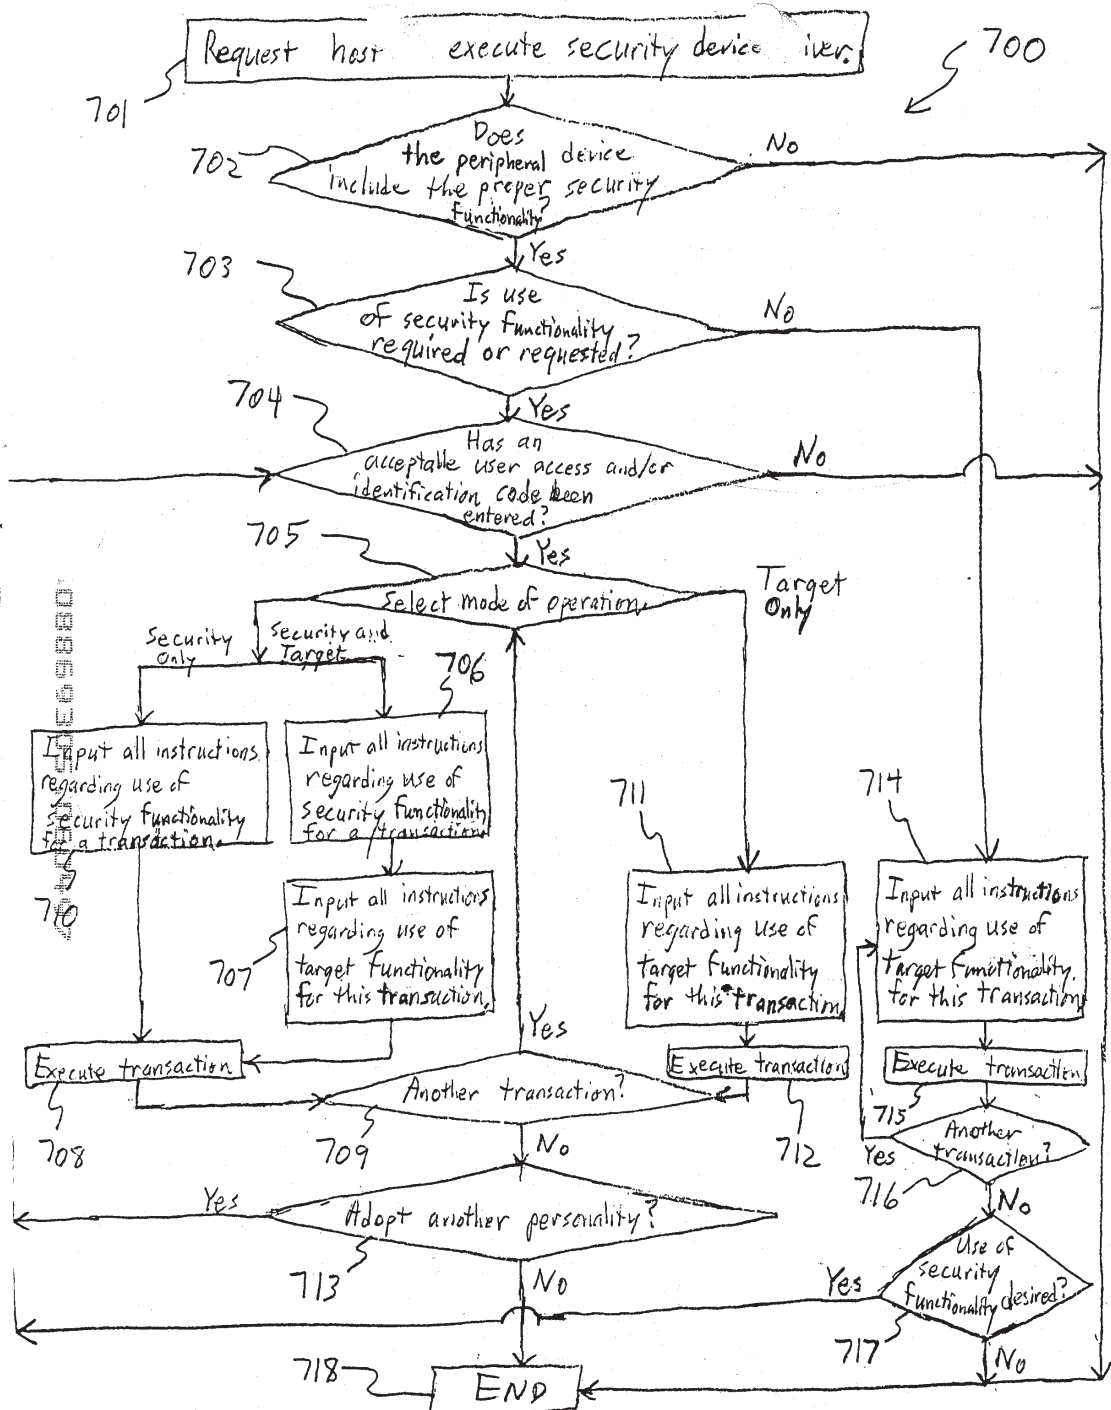 Request host execute security device iver.
700
701
Does
the peripheral device
include the proper security
functionality?
702
No
Yes
703
Is use
of security functionality
required or requested?
No
704
Yes
Has an
acceptable user access and/or
identification code been
entered?
No
705
Yes
Select mode of operation.
Target
Only
Security
Only
Security and
Target
706
Input all instructions
regarding use of
security functionality
for a transaction.
710
Input all instructions
regarding use of
security functionality
for a transaction.
711
714
707
Input all instructions
regarding use of
target functionality
for this transaction.
Input all instructions
regarding use of
target functionality
for this transaction
Input all instructions
regarding use of
target functionality.
for this transaction.
Yes
Execute transaction
708
Another transaction?
709
Execute transaction
712
Execute transaction
715
Another
transaction?
Yes
716
No
No
Yes
Adopt another personality?
713
No
Use of
security
functionality desired?
Yes
717
No
718
END